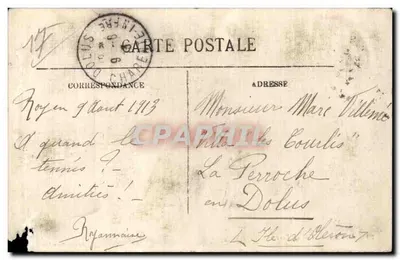 17
DOLUS
CHARENTE INFRE
CARTE POSTALE
CORRESPONDANCE
ADRESSE
Royan 9 Aout 1913
A quand le
tennis ? -
Amitiés ! -
Royannaise
Monsieur Marc
Villa "les Courlis"
La Perroche
en
Dolus
Ile d'Oleron
CPAPHIL